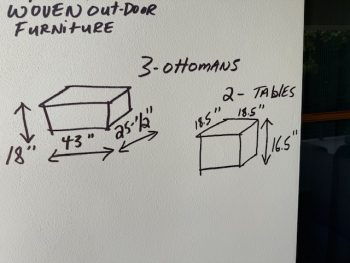 WOVEN OUT-DOOR
FURNITURE
3-OTTOMANS
2 - TABLES
18"
43"
25-1/2"
18.5"
18.5"
16.5"